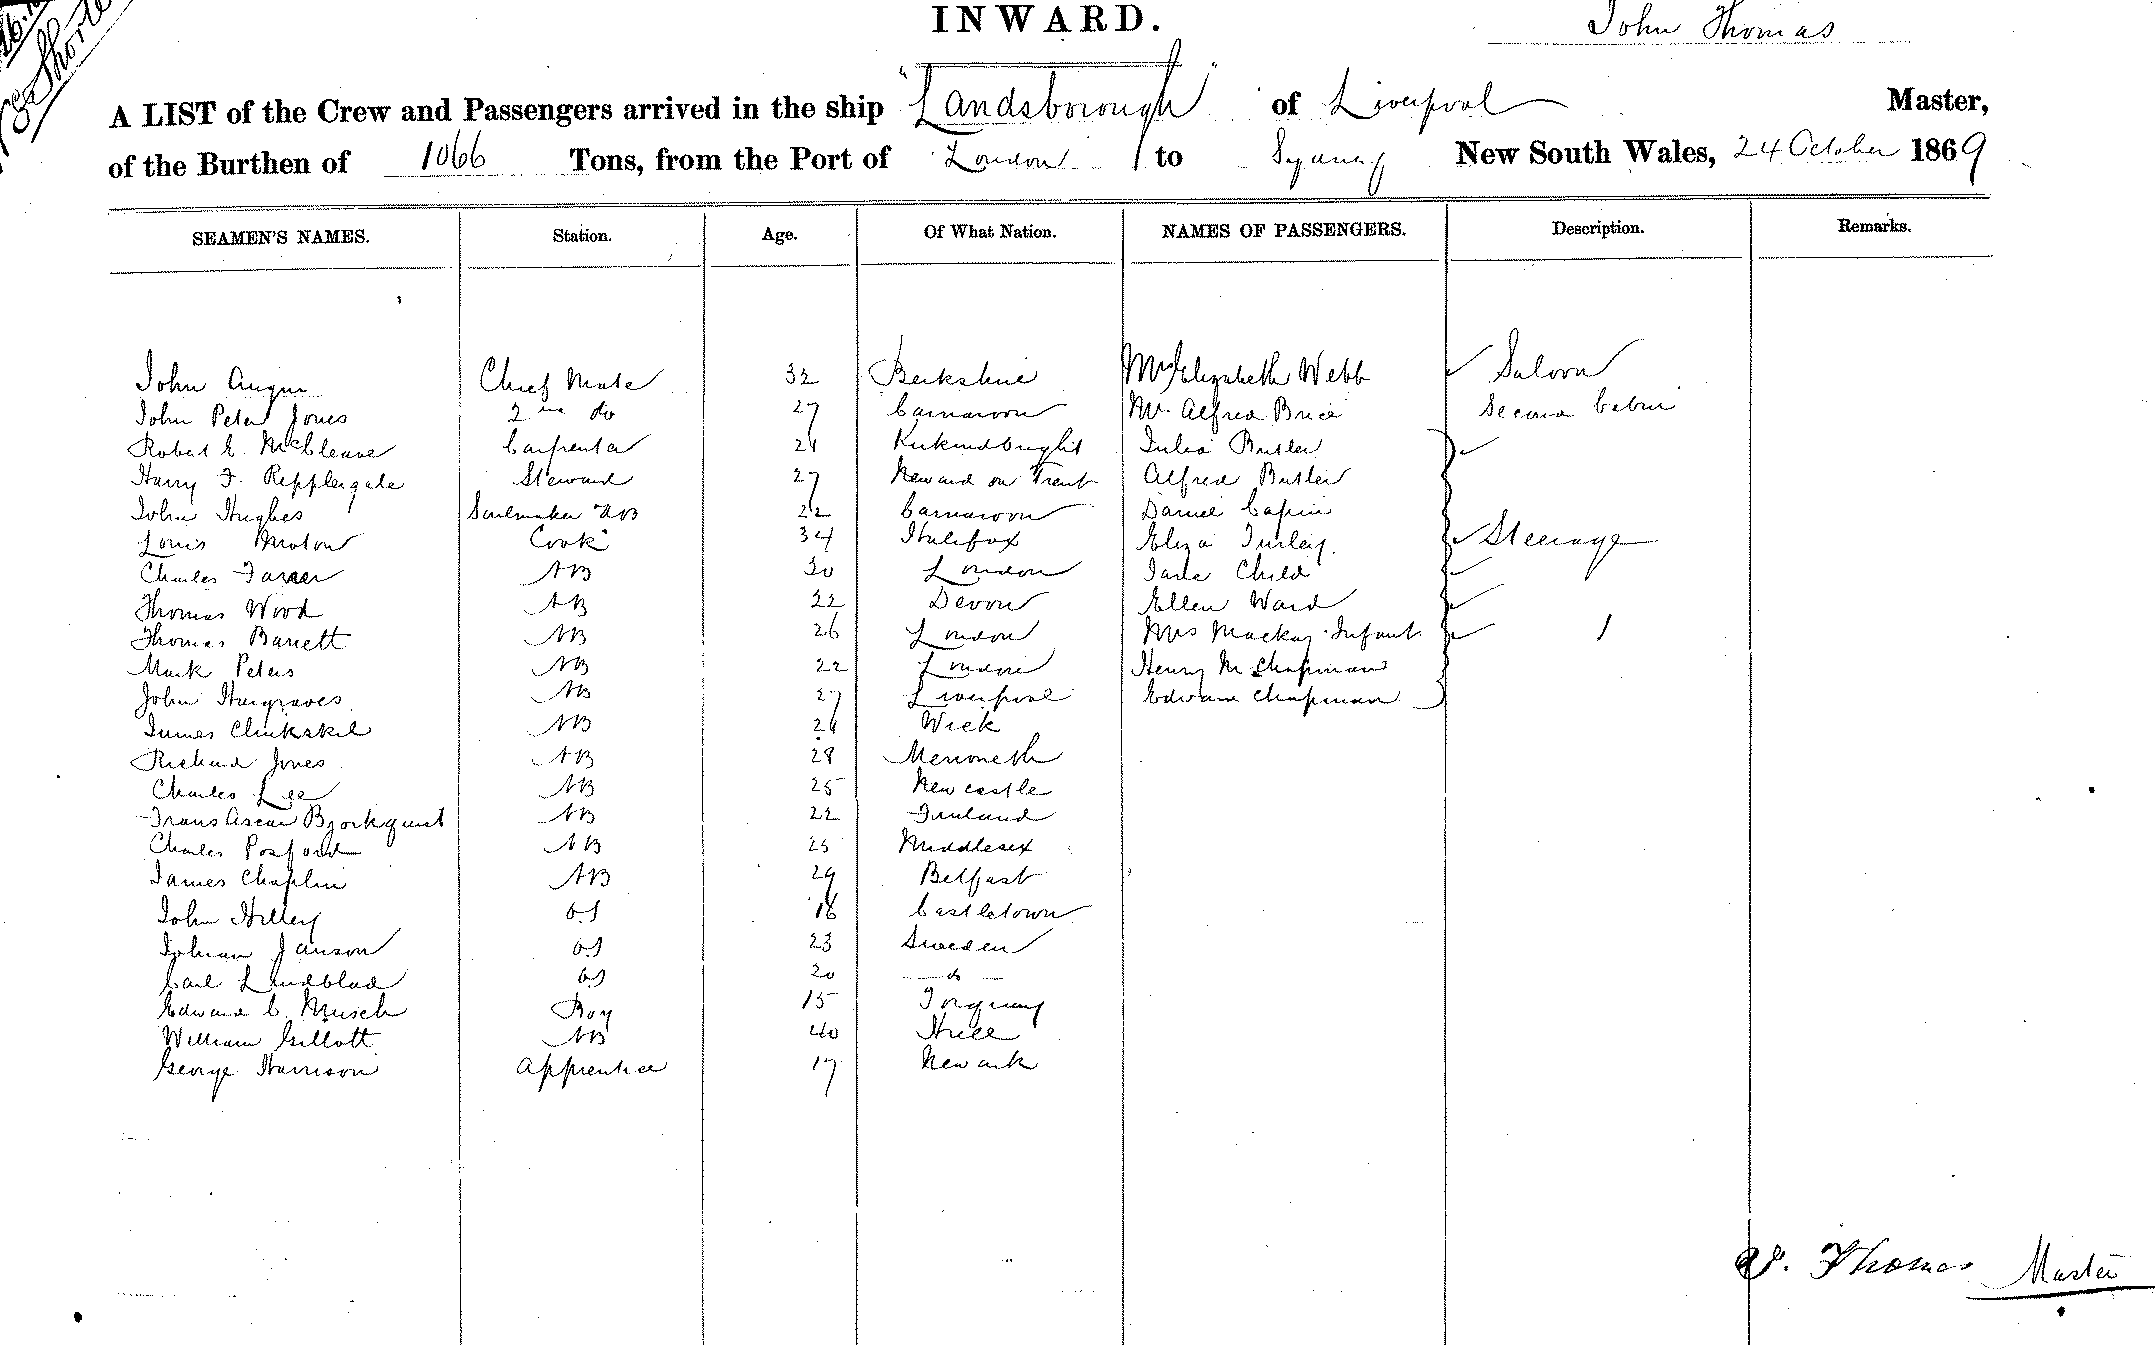 INWARD.
John Thomas
A LIST of the Crew and Passengers arrived in the ship "Landsborough" of Liverpool Master,
of the Burthen of 1066 Tons, from the Port of London to Sydney New South Wales, 24 October 1869
SEAMEN'S NAMES. Station. Age. Of What Nation. NAMES OF PASSENGERS. Description. Remarks.
John Angus Chief Mate 32 Berkshire Mrs Elizabeth Webb Saloon
John Peter Jones 2nd do 27 Carnarvon Mr. Alfred Brice Second Cabin
Robert E. McCleave Carpenter Kirkcudbright Julia Butler
Harry F. Repplergale Steward 27 Neward on Trent Alfred Butler
John Hughes Sailmaker AB 22 Carnarvon Daniel
Louis Molow Cook 34 Halifax Eliza Turley Steerage
Charles AB 30 London Jane Child
Thomas Wood AB 22 Devon Ellen Ward
Thomas Barrett AB 26 London Mrs Mackay Infant 1
Mark Peters AB 22 London Henry M Chapman
John Hargraves AB 27 Liverpool Edward Chapman
James AB Wick
Richard Jones AB 28 Merioneth
Charles Lee AB 25 Newcastle
Frans Ascar Bjorkquist AB 22 Finland
Charles Posford AB 25 Middlesex
James Chaplin AB 29 Belfast
John Hilley OS 18 Castletown
Johan Janson OS 23 Sweden
Carl Lindblad OS 20 — do —
Edward C. Boy 15 Torquay
William Gillott AB 40 Hull
George Harrison Apprentice 17 Newark
Thomas Master